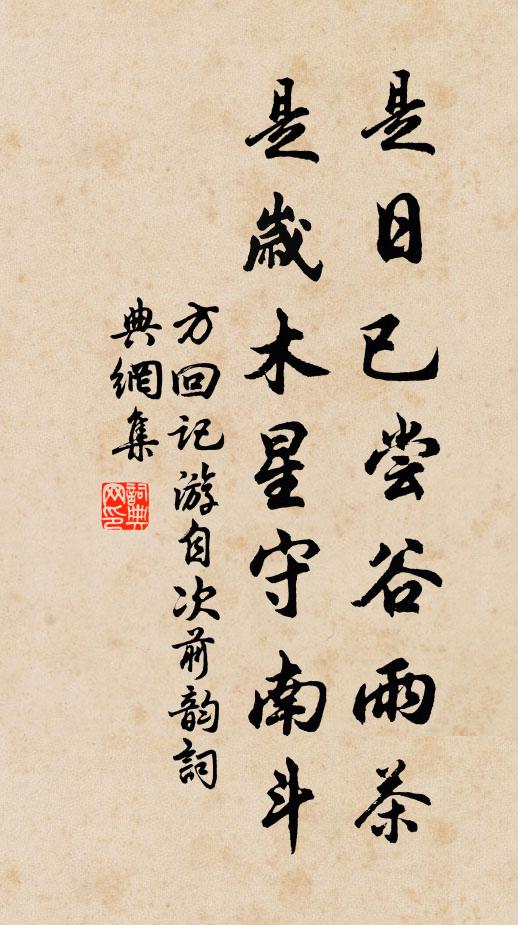 是日已尝谷雨茶
是歲木星守南斗
方回记游自次前韵詞
典網集
詞典网印